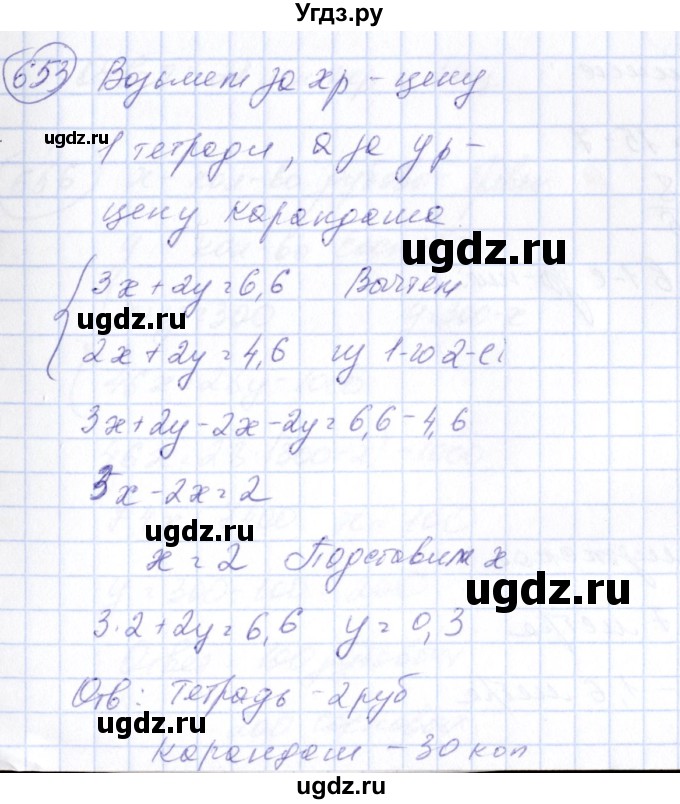 Угдз.ру
653 Возьмем за хр - цену
ugdz.ru
1 тетради, а за ур -
цену карандаша.
ugdz.ru
3x + 2y = 6,6 Вычтем
ugdz.ru
2x + 2y = 4,6 из 1-го 2-е
3x + 2y - 2x - 2y = 6,6 - 4,6
3x - 2x = 2
ugdz.ru
x = 2 Подставим x
ugdz.ru
3·2 + 2y = 6,6 y = 0,3
Отв: Тетрадь - 2 руб
ugdz.ru
карандаш - 30 коп
ugdz.ru